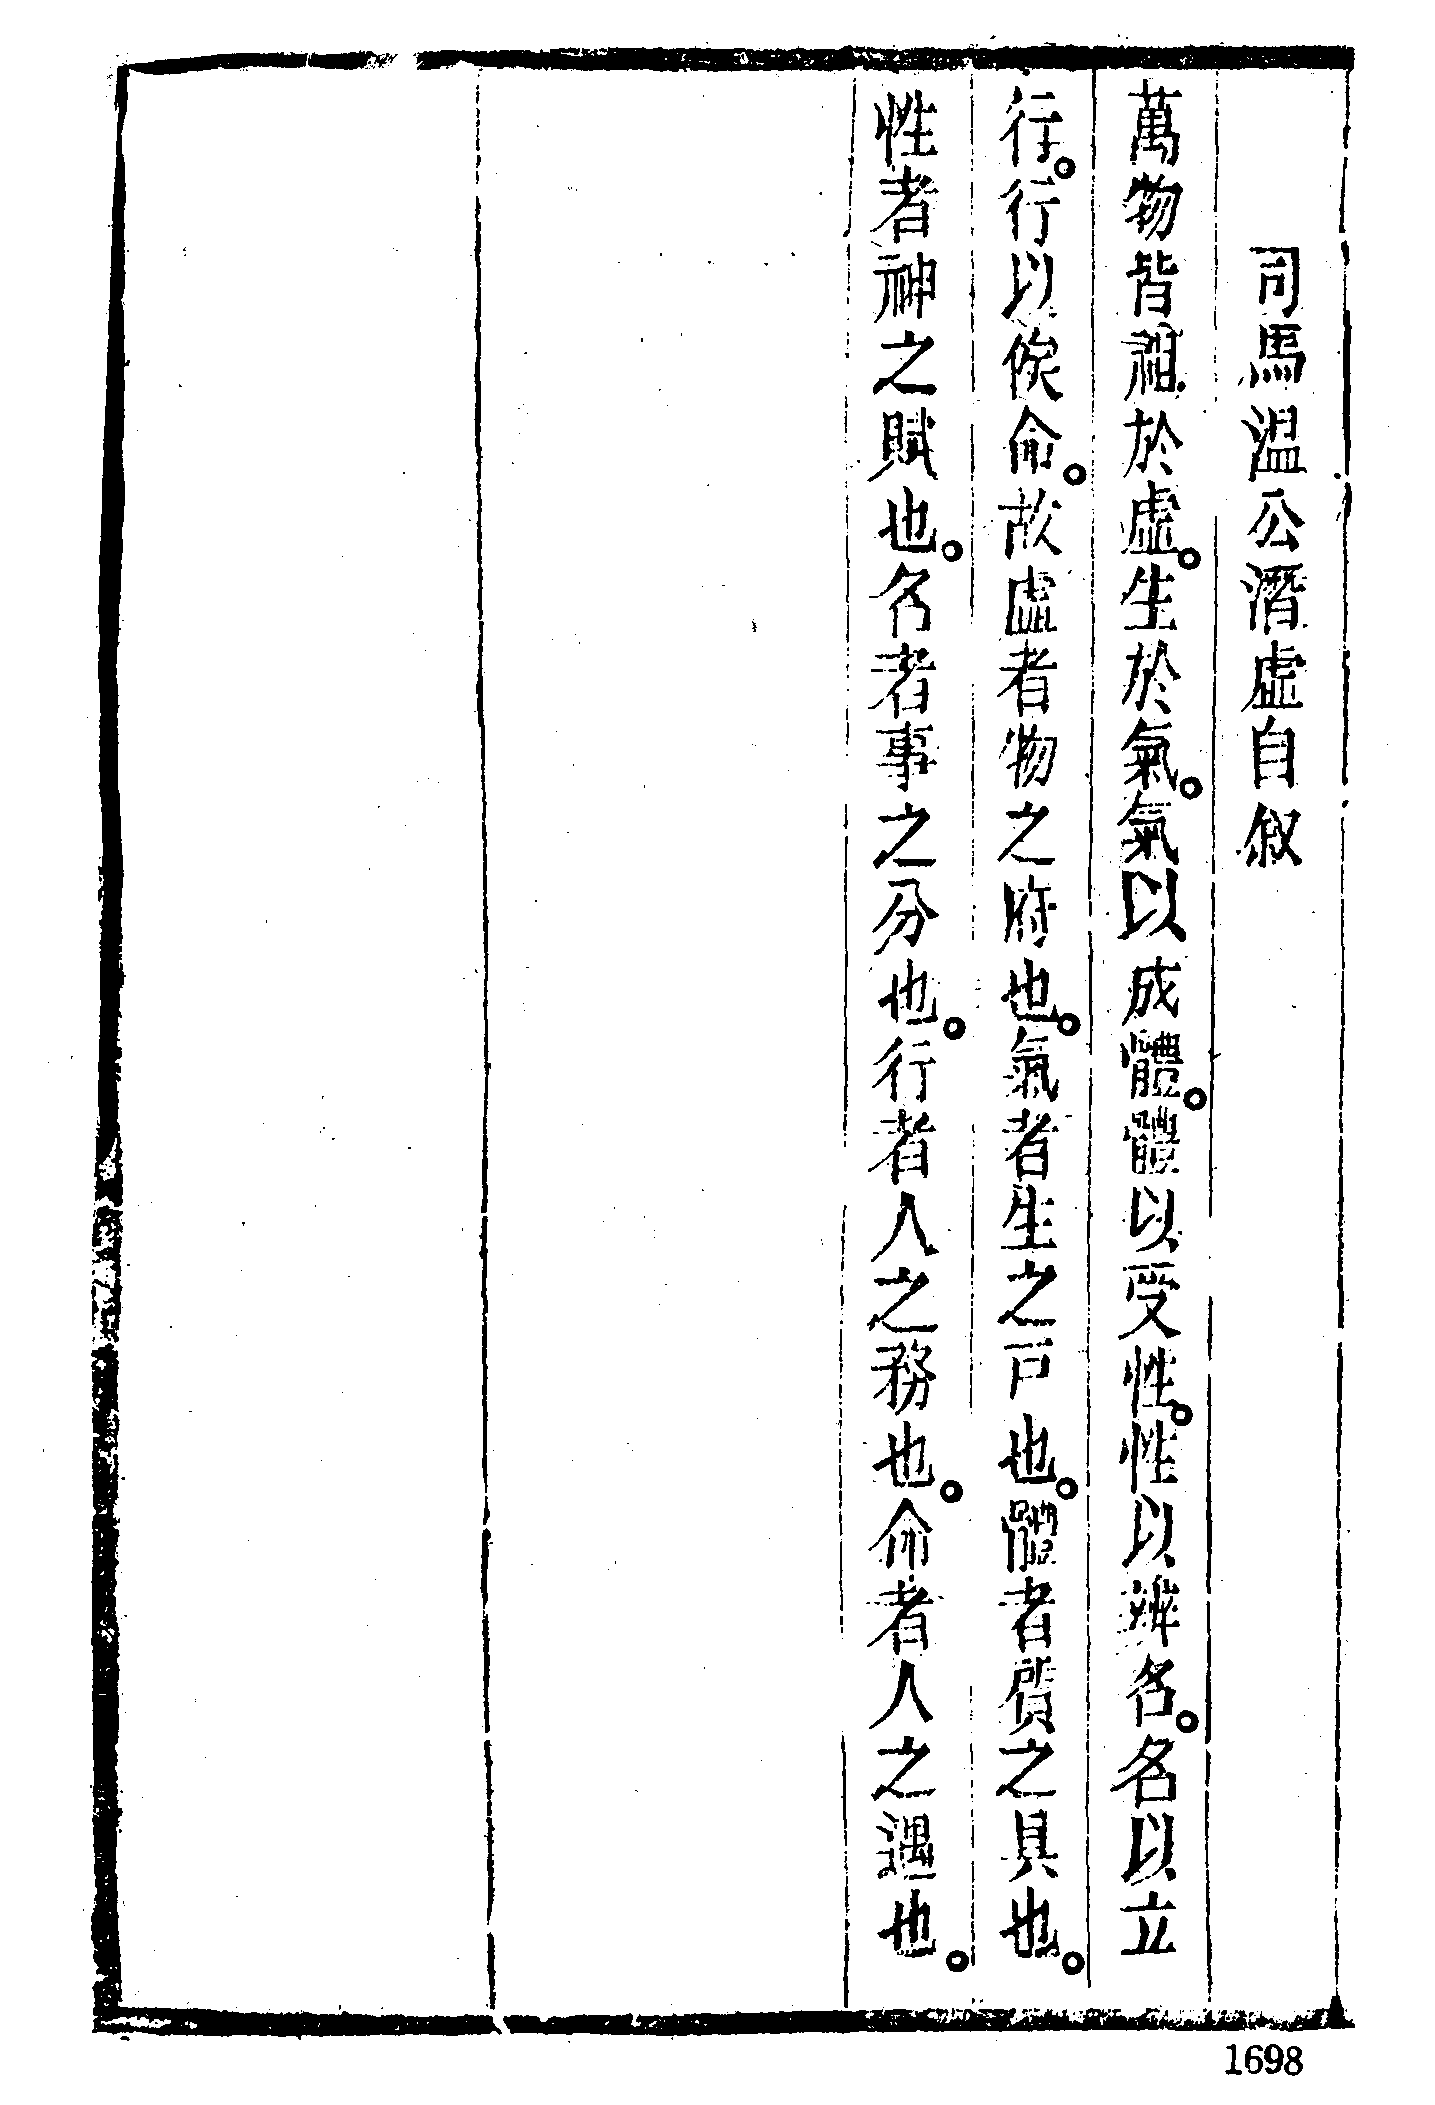 司馬温公潛虛自叙
萬物皆祖於虛。生於氣。氣以成體。體以受性。性以辨名。名以立
行。行以俟命。故虛者物之府也。氣者生之戸也。體者質之具也。
性者神之賦也。名者事之分也。行者人之務也。命者人之遇也。
1698